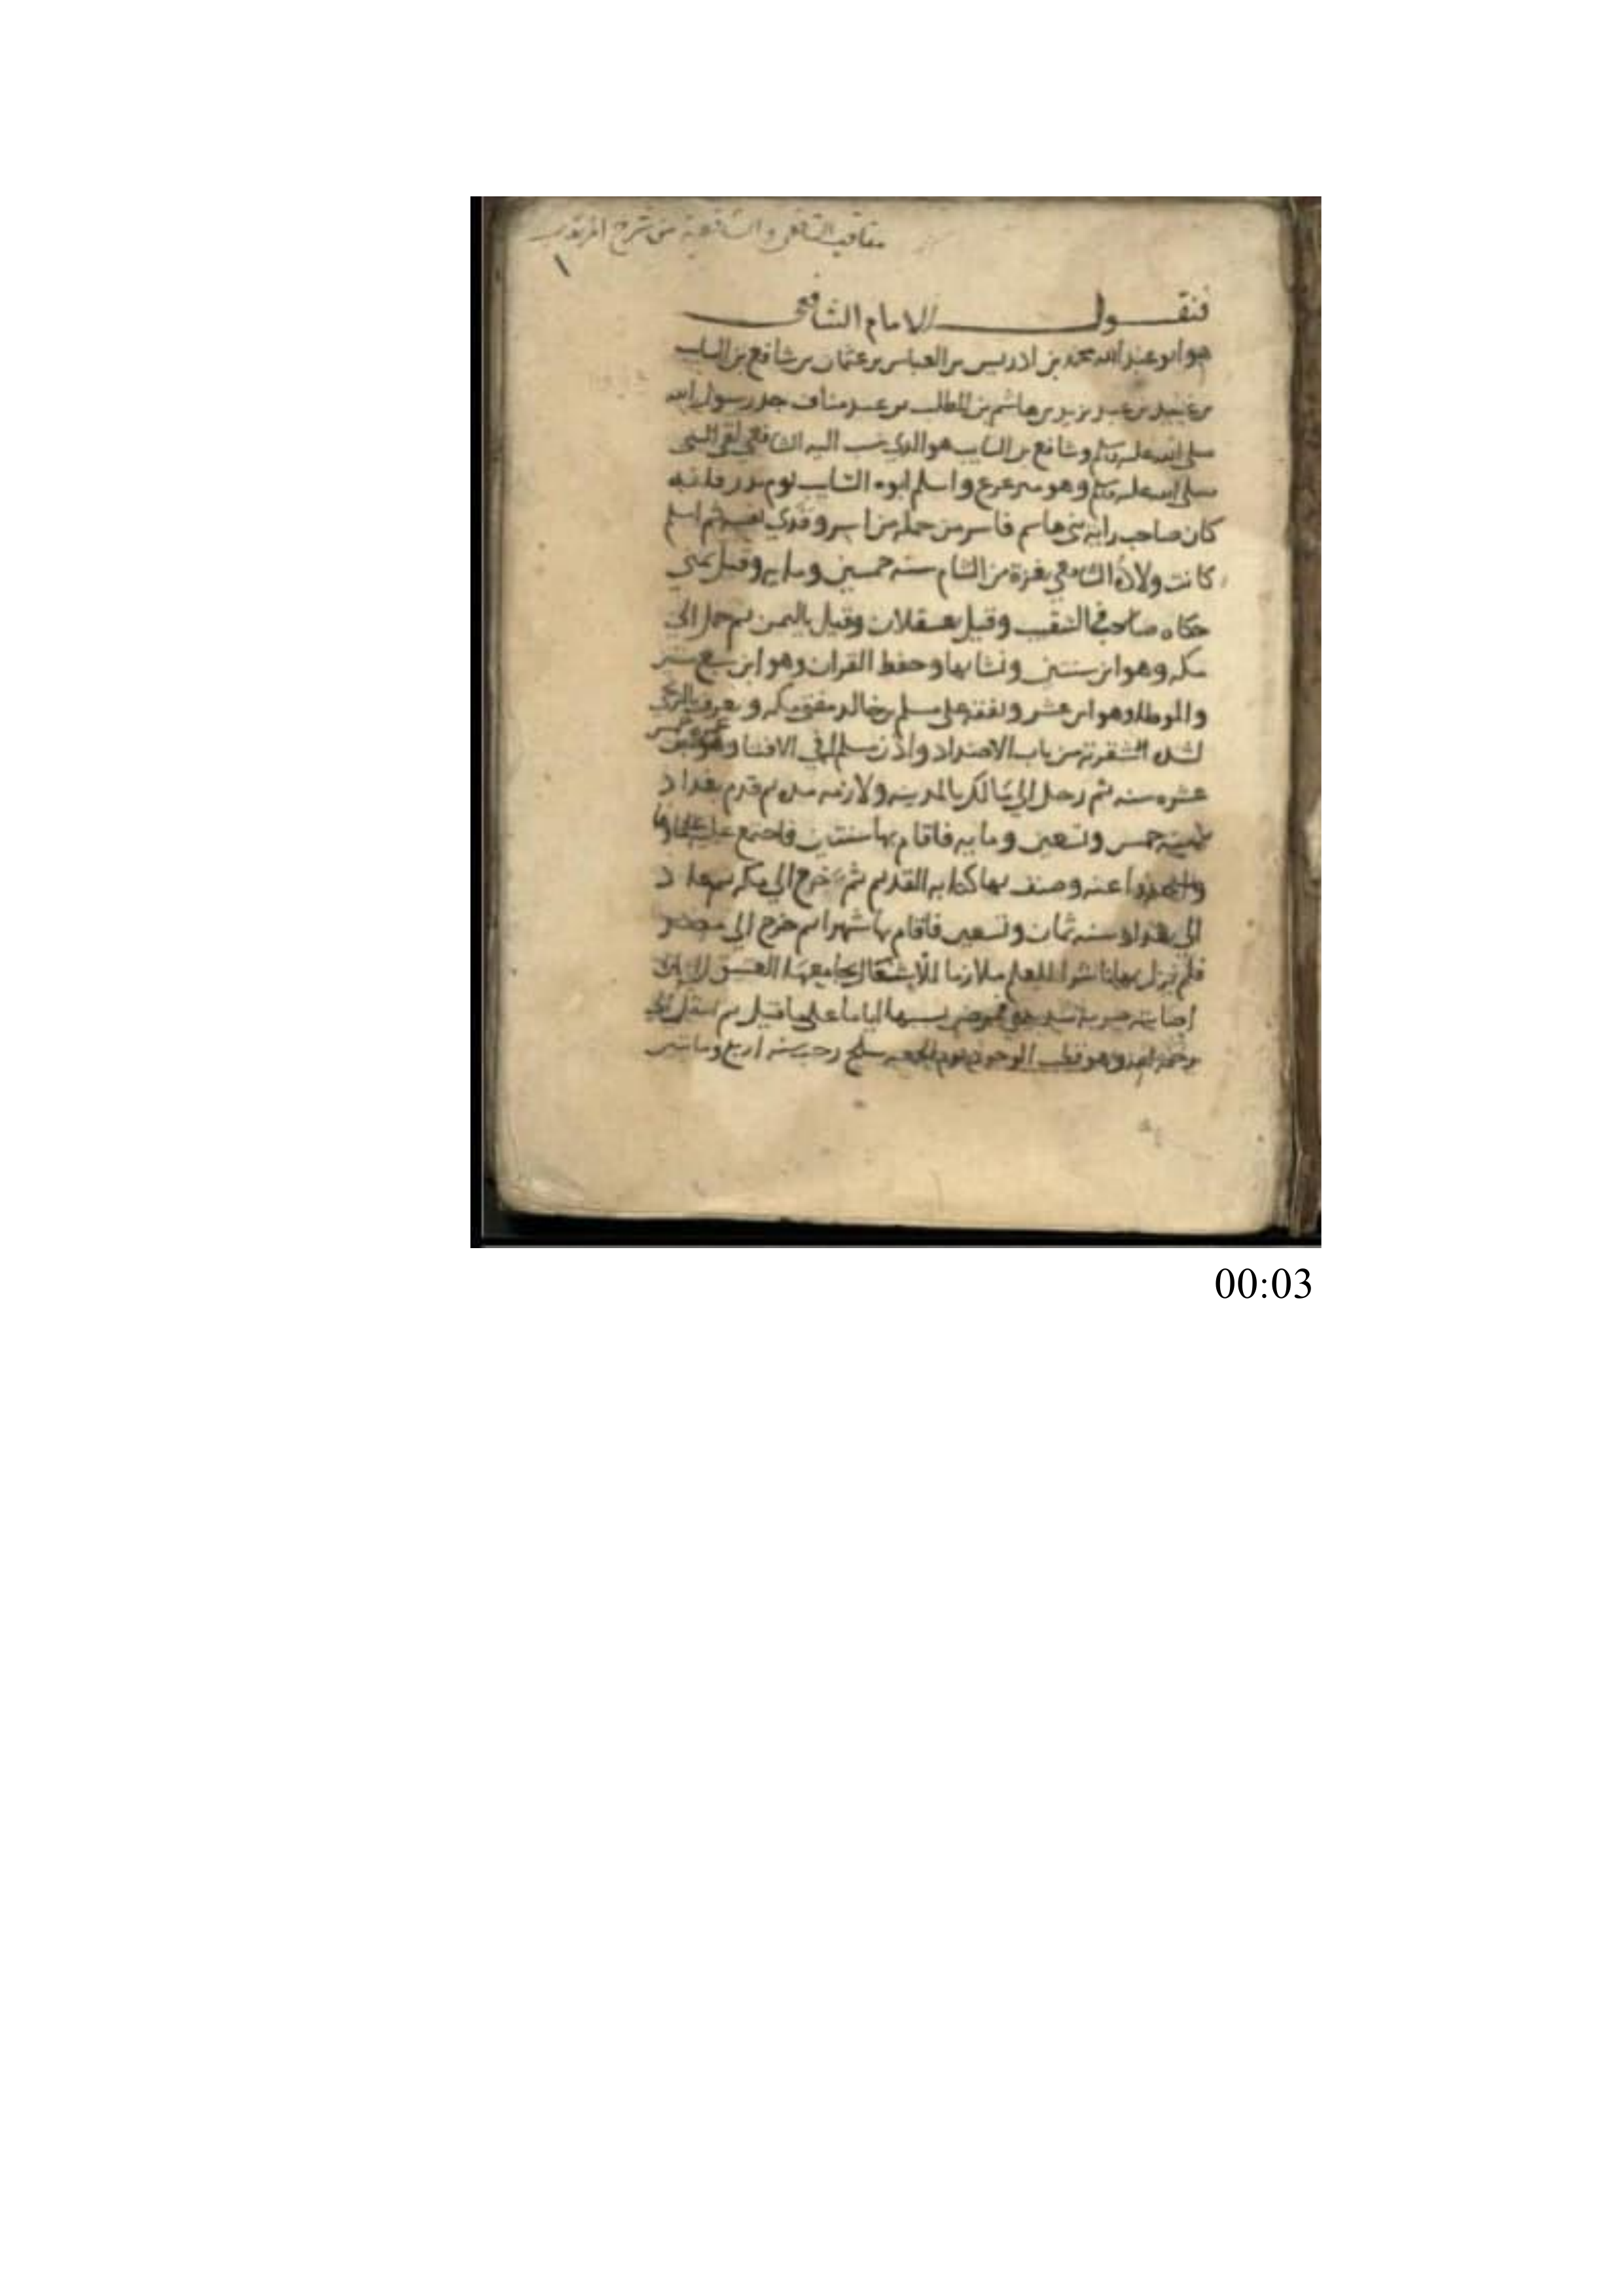 مناقب الشافعي والشافعية من شرح
١
فنقول الامام الشافعي
هو ابو عبد الله محمد بن ادريس بن العباس بن عثمان بن شافع بن السايب
بن عبيد بن عبد يزيد بن هاشم بن المطلب بن عبد مناف جد رسول الله
صلى الله عليه وسلم وشافع بن السايب هو الذي ينسب اليه الشافعي لقي النبي
صلى الله عليه وسلم وهو مترعرع واسلم ابوه السايب يوم بدر فانه
كان صاحب راية بني هاشم فاسر من جملة من اسر وفدي نفسه ثم اسلم
كانت ولادة الشافعي بغزة من الشام سنه خمسين ومايه وقيل بمنى
حكاه صاحب التنقيب وقيل بعسقلان وقيل باليمن ثم حمل الى
مكه وهو ابن سنتين ونشا بها وحفظ القران وهو ابن سبع سنين
والموطا وهو ابن عشر وتفقه على مسلم بن خالد مفتي مكه ويعرف بالزنجي
لشده الشقرته من باب الاضداد واذن مسلم في الافتا وهو ابن خمس
عشره سنه ثم رحل الى مالك بالمدينه ولازمه مده ثم قدم بغداد
سنه خمس وتسعين ومايه فاقام بها سنتين فاجتمع عليه علماوها
واخذوا عنه وصنف بها كتابه القديم ثم خرج الى مكه ثم عاد
الى بغداد سنه ثمان وتسعين فاقام بها شهرا ثم خرج الى مصر
فلم يزل بها ناشرا للعلم ملازما للاشتغال بجامعها العتيق الى ان
اصابته ضربة شديده فمرض بسببها اياما على ما قيل ثم انتقل الى
رحمة الله وهو قطب الوجود يوم الجمعه سلخ رجب سنه اربع وماتين
00:03